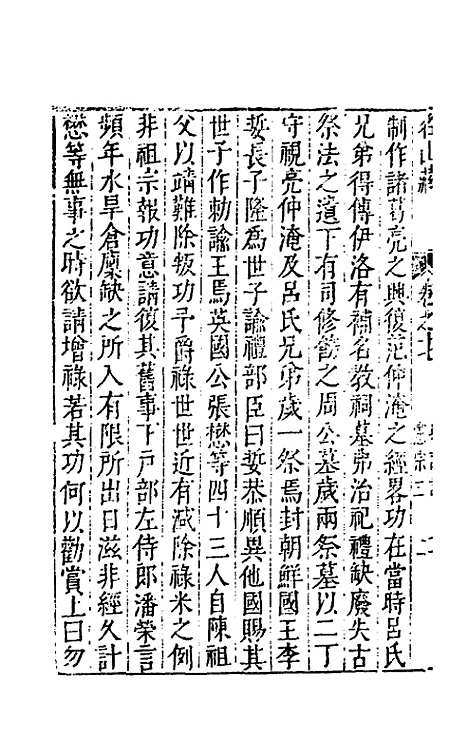 名山藏 卷之 典謨記 憲宗二 二
制作諸葛亮之興復范仲淹之經畧功在當時呂氏
兄弟得傳伊洛有補名教祠墓弗治祀禮缺廢失古
祭法之遺下有司修營之周公墓歲兩祭墓以二丁
守視亮仲淹及呂氏兄弟歲一祭焉封朝鮮國王李
娎長子隆爲世子諭禮部臣曰娎恭順異他國賜其
世子作勅諭王焉英國公張懋等四十三人自陳祖
父以靖難除叛功予爵祿世世近有減除祿米之例
非祖宗報功意請復其舊事下戶部左侍郎潘榮言
頻年水旱倉廩缺之所入有限所出日滋非經久計
懋等無事之時欲請增祿若其功何以勸賞上曰勿